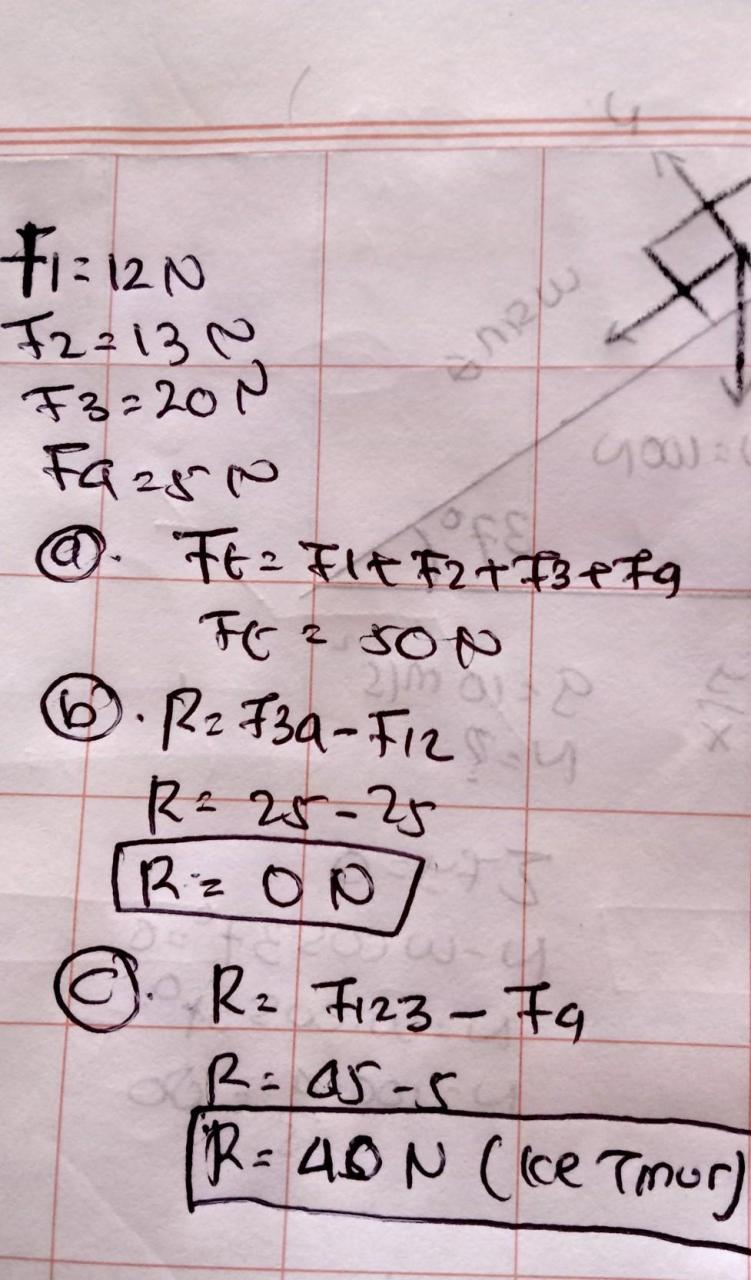 F1 = 12 N
F2 = 13 N
F3 = 20 N
F4 = 5 N
(a). Ft = F1 + F2 + F3 + F4
Ft = 50 N
(b). R = F34 - F12
R = 25 - 25
R = 0 N
(c). R = F123 - F4
R = 45 - 5
R = 40 N (ke Timur)